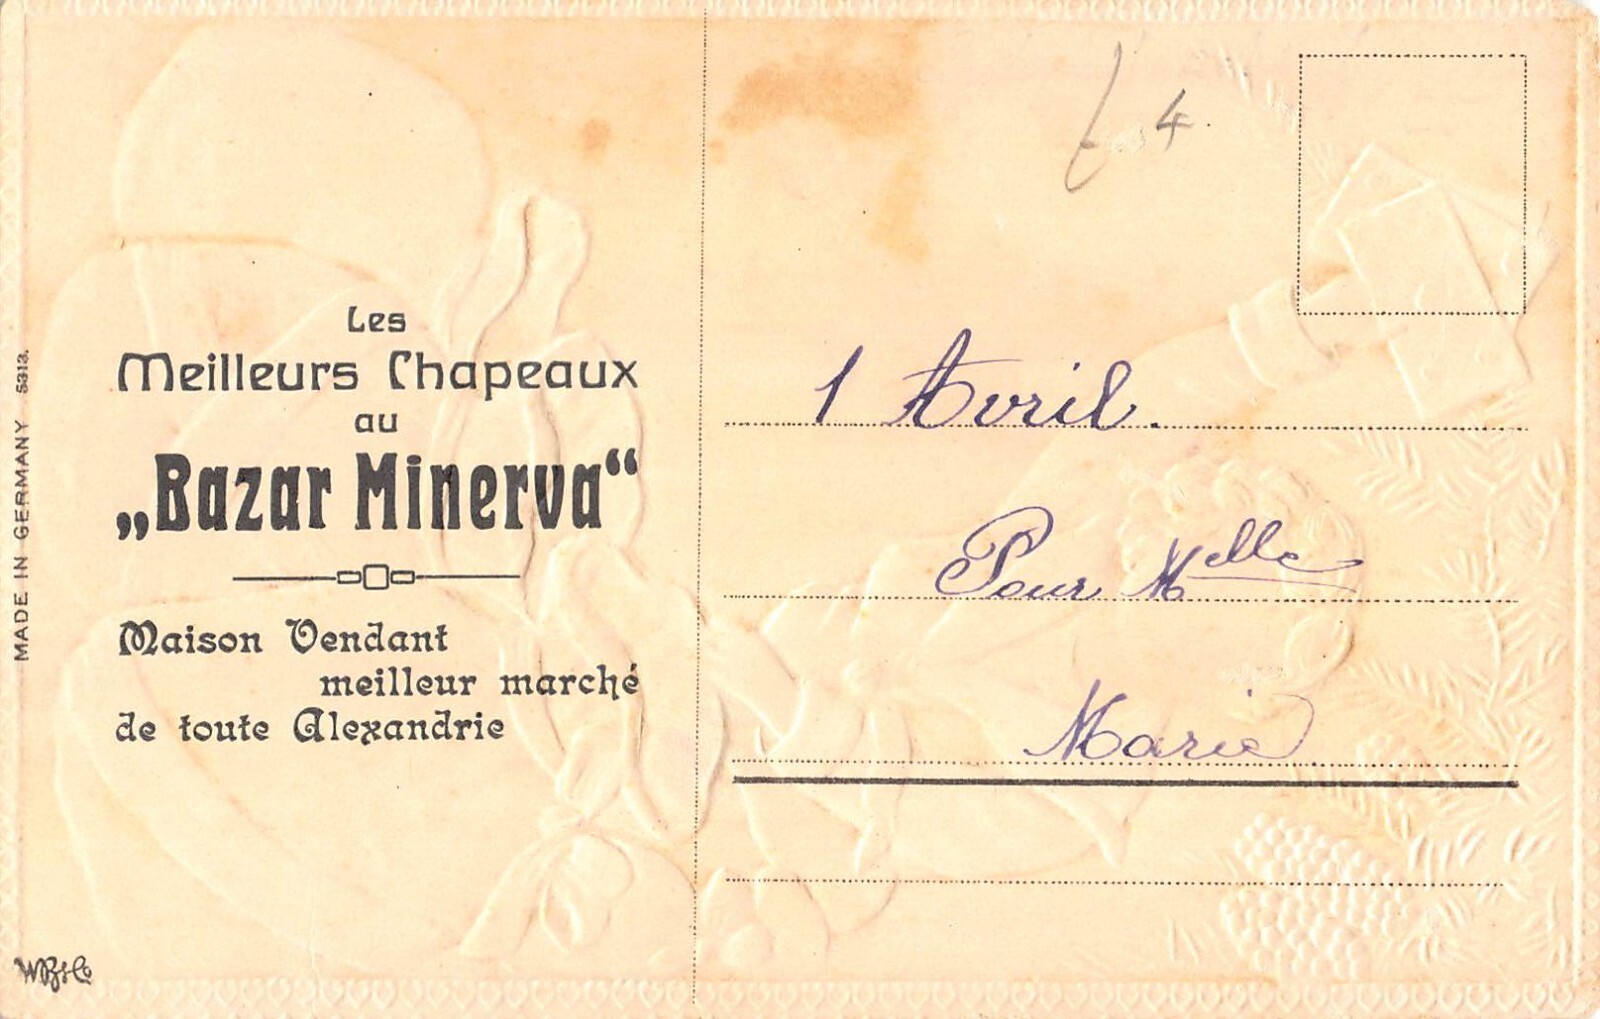 Les
Meilleurs Chapeaux
au
„Bazar Minerva“
Maison Vendant
meilleur marché
de toute Alexandrie
MADE IN GERMANY 5313.
4.
1 Avril.
Pour Melle
Marie